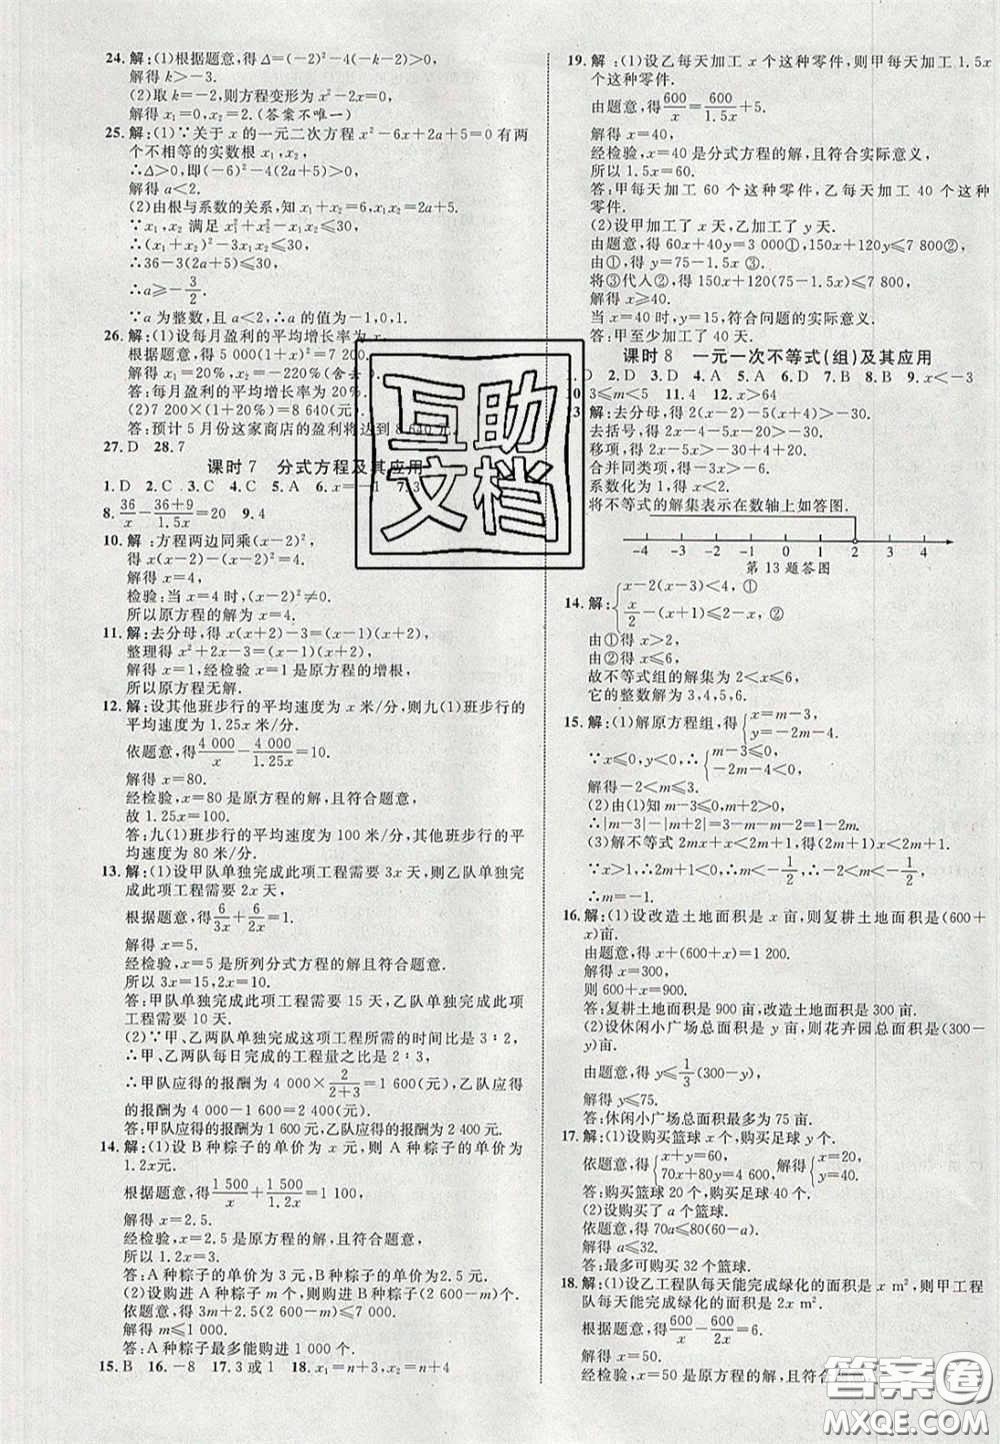 24. 解:(1)根据题意,得 Δ=(−2)²−4(−k−2)>0,
解得 k>−3.
(2)取 k=−2,则方程变形为 x²−2x=0,
解得 x₁=0,x₂=2.(答案不唯一)
25. 解:(1)∵关于 x 的一元二次方程 x²−6x+2a+5=0 有两
个不相等的实数根 x₁,x₂,
∴Δ>0,即(−6)²−4(2a+5)>0,
解得 a<2.
(2)由根与系数的关系,知 x₁+x₂=6,x₁x₂=2a+5.
∵x₁,x₂ 满足 x₁²+x₂²−x₁x₂≤30,
∴(x₁+x₂)²−3x₁x₂≤30,
∴36−3(2a+5)≤30,
∴a≥−3/2.
∵a 为整数,且 a<2,∴a 的值为−1,0,1.
26. 解:(1)设每月盈利的平均增长率为 x,
根据题意,得 5 000(1+x)²=7 200,
解得 x₁=20%,x₂=−220%(舍去).
答:每月盈利的平均增长率为 20%.
(2)7 200×(1+20%)=8 640(元).
答:预计 5 月份这家商店的盈利将达到 8 640 元.
27. D 28. 7
课时 7 分式方程及其应用
1. D 2. C 3. C 4. C 5. A 6. x=−1 7. 3
8. 36/x−(36+9)/1.5x=20 9. 4
10. 解:方程两边同乘(x−2)²,
得 x(x−2)−(x−2)²=4,
解得 x=4,
检验:当 x=4 时,(x−2)²≠0.
所以原方程的解为 x=4.
11. 解:去分母,得 x(x+2)−3=(x−1)(x+2),
整理得 x²+2x−3=(x−1)(x+2),
解得 x=1,经检验 x=1 是原方程的增根,
所以原方程无解.
12. 解:设其他班步行的平均速度为 x 米/分,则九(1)班步行的
平均速度为 1.25x 米/分.
依题意,得 4 000/x−4 000/1.25x=10.
解得 x=80.
经检验,x=80 是原方程的解,且符合题意,
故 1.25x=100.
答:九(1)班步行的平均速度为 100 米/分,其他班步行的平
均速度为 80 米/分.
13. 解:(1)设甲队单独完成此项工程需要 3x 天,则乙队单独完
成此项工程需要 2x 天,
根据题意,得 6/3x+6/2x=1,
解得 x=5.
经检验,x=5 是所列分式方程的解且符合题意.
所以 3x=15,2x=10.
答:甲队单独完成此项工程需要 15 天,乙队单独完成此项
工程需要 10 天.
(2)∵甲、乙两队单独完成这项工程所需的时间比是 3∶2,
∴甲、乙两队每日完成的工程量之比是 2∶3,
∴甲队应得的报酬为 4 000×2/(2+3)=1 600(元),乙队应得
的报酬为 4 000−1 600=2 400(元).
答:甲队应得的报酬为 1 600 元,乙队应得的报酬为 2 400 元.
14. 解:(1)设 B 种粽子的单价为 x 元,则 A 种粽子的单价为
1.2x 元.
根据题意,得 1 500/x+1 500/1.2x=1 100,
解得 x=2.5.
经检验,x=2.5 是原方程的解,且符合题意,
所以 1.2x=3.
答:A 种粽子的单价为 3 元,B 种粽子的单价为 2.5 元.
(2)设购进 A 种粽子 m 个,则购进 B 种粽子(2 600−m)个,
依题意,得 3m+2.5(2 600−m)≤7 000,
解得 m≤1 000.
答:A 种粽子最多能购进 1 000 个.
15. B 16. −8 17. 3 或 1 18. x₁=n+3,x₂=n+4
19. 解:(1)设乙每天加工 x 个这种零件,则甲每天加工 1.5x
个这种零件.
由题意,得 600/x=600/1.5x+5.
解得 x=40,
经检验,x=40 是分式方程的解,且符合实际意义,
所以 1.5x=60.
答:甲每天加工 60 个这种零件,乙每天加工 40 个这种
零件.
(2)设甲加工了 x 天,乙加工了 y 天.
由题意,得 60x+40y=3 000①,150x+120y≤7 800②.
由①,得 y=75−1.5x③.
将③代入②,得 150x+120(75−1.5x)≤7 800,
解得 x≥40.
当 x=40 时,y=15,符合问题的实际意义.
答:甲至少加工了 40 天.
课时 8 一元一次不等式(组)及其应用
D 2. D 3. D 4. A 5. A 6. D 7. B 8. B 9. x<−3
0. 3≤m<5 11. 4 12. x>64
3. 解:去分母,得 2(x−2)−5(x+4)>−30.
去括号,得 2x−4−5x−20>−30.
移项,得 2x−5x>−30+4+20.
合并同类项,得−3x>−6.
系数化为 1,得 x<2.
将不等式的解集表示在数轴上如答图.
−4 −3 −2 −1 0 1 2 3 4
第 13 题答图
14. 解:{x−2(x−3)<4, ①
x/2−(x+1)≤2−x, ②
由①得 x>2.
由②得 x≤6.
故不等式组的解集为 2<x≤6,
它的整数解为 3,4,5,6.
15. 解:(1)解原方程组,得{x=m−3,
y=−2m−4.
∵x≤0,y<0,∴{m−3≤0,
−2m−4<0,
解得−2<m≤3.
(2)由(1)知 m−3≤0,m+2>0,
∴|m−3|−|m+2|=3−m−m−2=1−2m.
(3)解不等式 2mx+x<2m+1,得(2m+1)x<2m+1.
∵x>1,∴2m+1<0,∴m<−1/2,∴−2<m<−1/2,
∴m=−1.
16. 解:(1)设改造土地面积是 x 亩,则复耕土地面积是(600+
x)亩.
由题意,得 x+(600+x)=1 200.
解得 x=300,
则 600+x=900.
答:复耕土地面积是 900 亩,改造土地面积是 300 亩.
(2)设休闲小广场总面积是 y 亩,则花卉园总面积是(300−
y)亩.
由题意,得 y≤1/3(300−y),
解得 y≤75.
答:休闲小广场总面积最多为 75 亩.
17. 解:(1)设购买篮球 x 个,购买足球 y 个.
依题意,得{x+y=60,
70x+80y=4 600,解得{x=20,
y=40.
答:购买篮球 20 个,购买足球 40 个.
(2)设购买了 a 个篮球.
依题意,得 70a≤80(60−a).
解得 a≤32.
答:最多可购买 32 个篮球.
18. 解:(1)设乙工程队每天能完成绿化的面积是 x m²,则甲工程
队每天能完成绿化的面积是 2x m².
根据题意,得 600/x−600/2x=6.
解得 x=50.
经检验,x=50 是原方程的解,且符合
互助
文档
答案圈
MXQE.COM